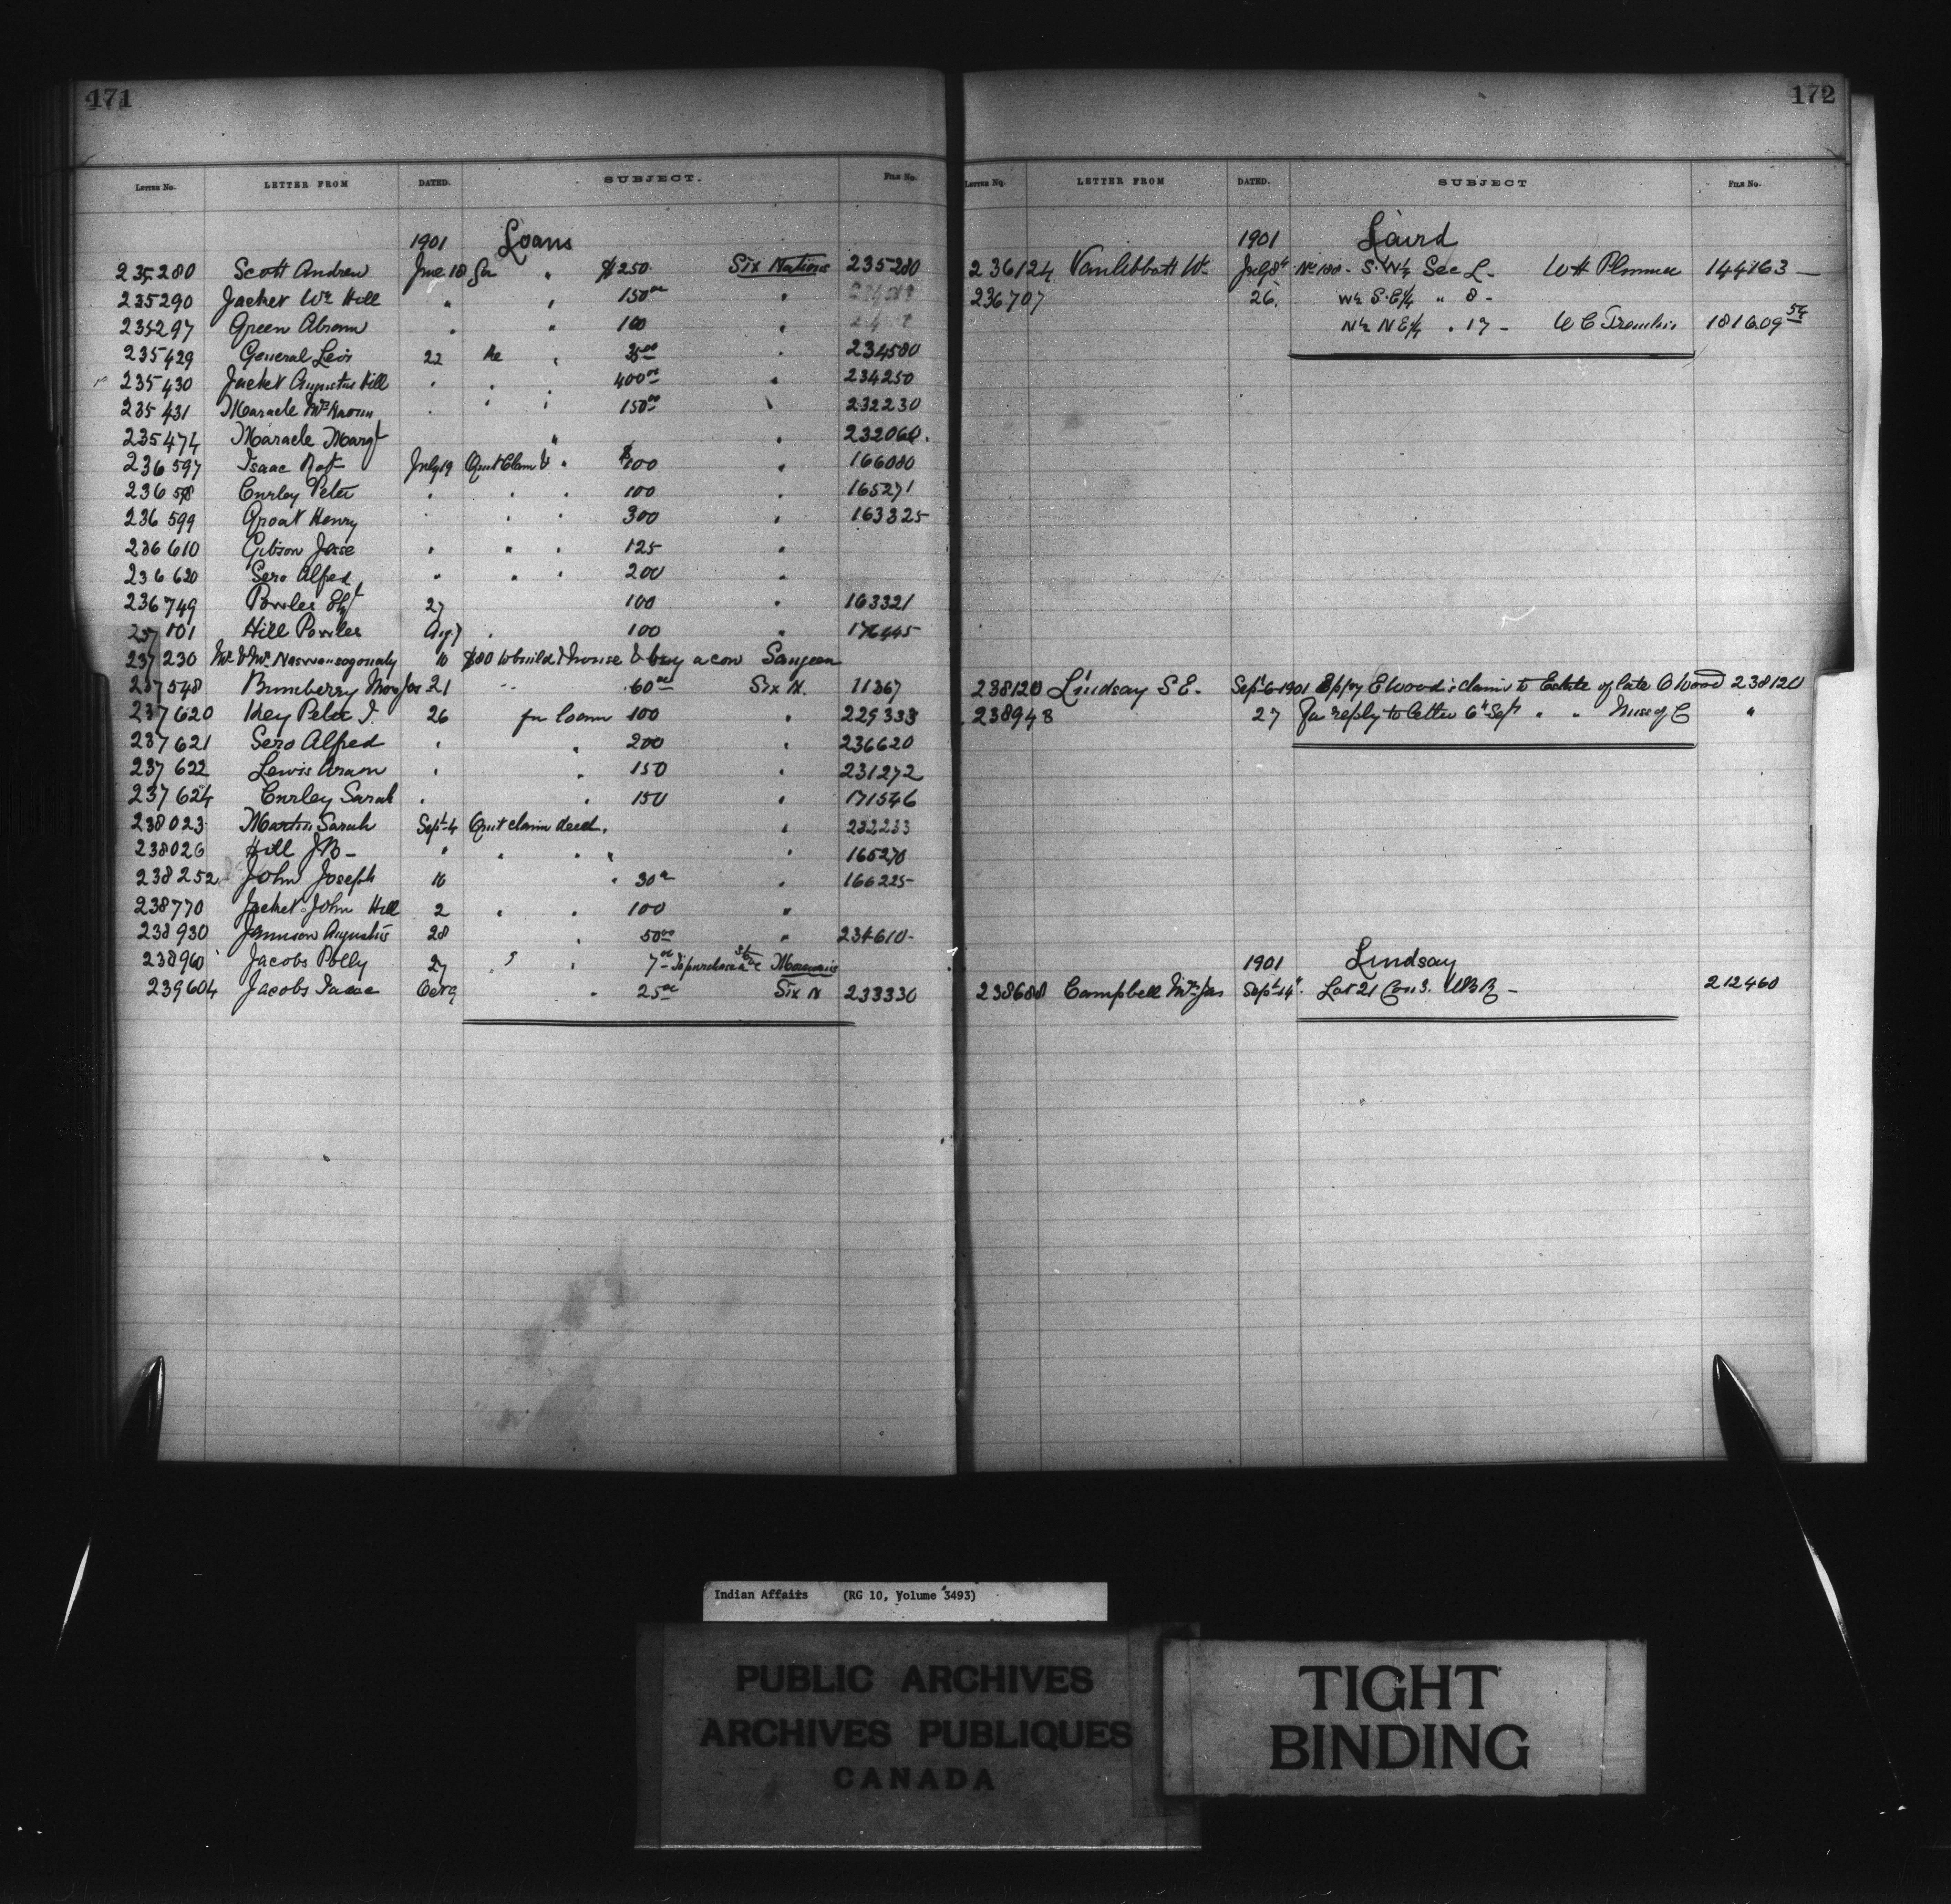 171
LETTER NO. LETTER FROM DATED. SUBJECT. FILE NO.
1901 Loans
235280 Scott Andrew June 18 for " $250. Six Nations 235280
235290 Jacket Wm Hill " " 150 00 "
235297 Green Abram " " 100 "
235429 General Levi 22 Re " 35 00 " 234580
235430 Jacket Augustus Hill " " 400 00 " 234250
235431 Maracle Mrs " " " 150 00 " 232230
235474 Maracle Margt " " 232060.
236597 Isaac July 19 Quit Claim & " $100 " 166080
236598 Curley Peter " " " 100 " 165271
236599 Groat Henry " " " 300 " 163325
236610 Gibson Jesse " " " 125 "
236620 Sero Alfred " " " 200 "
236749 Powles 27 100 " 163321
237101 Hill Powles Aug 7 " 100 " 176445
237230 Mr & Mrs 10 $80 to build house & buy a cow Saugeen
237548 Bumberry Mrs Jas 21 " 60 00 Six N. 11367
237620 Key Peter J. 26 for loan 100 " 229333
237621 Sero Alfred " " 200 " 236620
237622 Lewis Aaron " " 150 " 231272
237624 Curley Sarah " " 150 " 171546
238023 Martin Sarah Sept 4 Quit claim deed. " 232233
238026 Hill J B - " " " " " 165270
238252 John Joseph 10 " 30 " 166225
238770 Jacket John Hill 2 " " 100 "
238930 Jamieson Augustus 28 " 50 00 " 234610-
238960 Jacobs Polly 27 " " 7 00 To purchase a stove
239604 Jacobs Isaac Oct 9 " 25 00 Six N 233330
172
LETTER NO. LETTER FROM DATED. SUBJECT FILE NO.
1901 Laird
236124 July 8th No 180 - S.W¼ Sec L - W H Plummer 144163 -
236707 26. W½ S.E¼ " 8 -
N½ N E¼ " 17 - 181609 54
238120 Lindsay S E. Sept 6 1901 E Wood's claim to Estate of late O Wood 238120
238948 27 For reply to letter 6th Sept " " "
1901 Lindsay
238688 Campbell Mrs Jas Sept 14th Lot 21 Con 3. 212460
Indian Affairs (RG 10, Volume 3493)
PUBLIC ARCHIVES
ARCHIVES PUBLIQUES
CANADA
TIGHT
BINDING